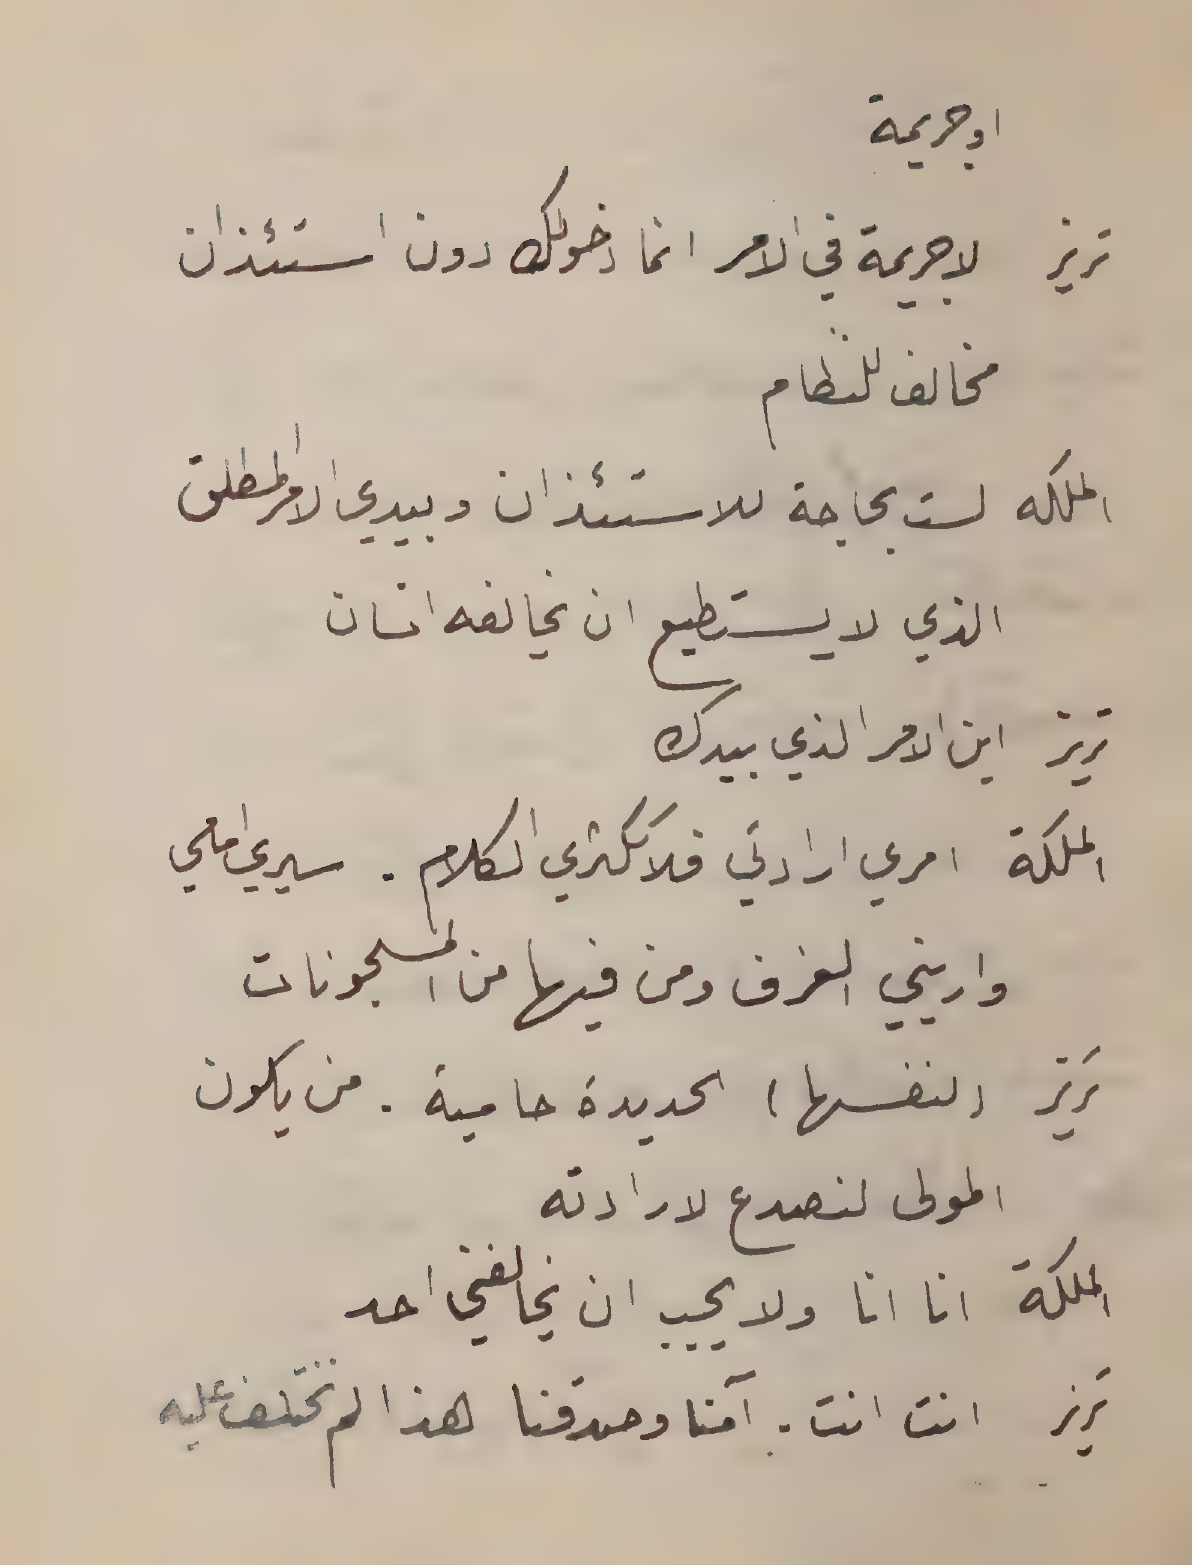 او جريمة
تريز لا جريمة في الامر انما دخولك دون استئذان
مخالف للنظام
الملكه لست بحاجة للاستئذان وبيدي الامر المطلق
الذي لا يستطيع ان يخالفه انسان
تريز اين الامر الذي بيدك
الملكة امري ارادتي فلا تكثري الكلام . سيري امامي
واريني الغرف ومن فيها من المسجونات
تريز (لنفسها) الحديدة حامية . من يكون
المولى لنصدع لارادته
الملكة انا انا ولا يجب ان يخالفني احد
تريز انت انت . آمنا وصدقنا هذا لم نختلف عليه